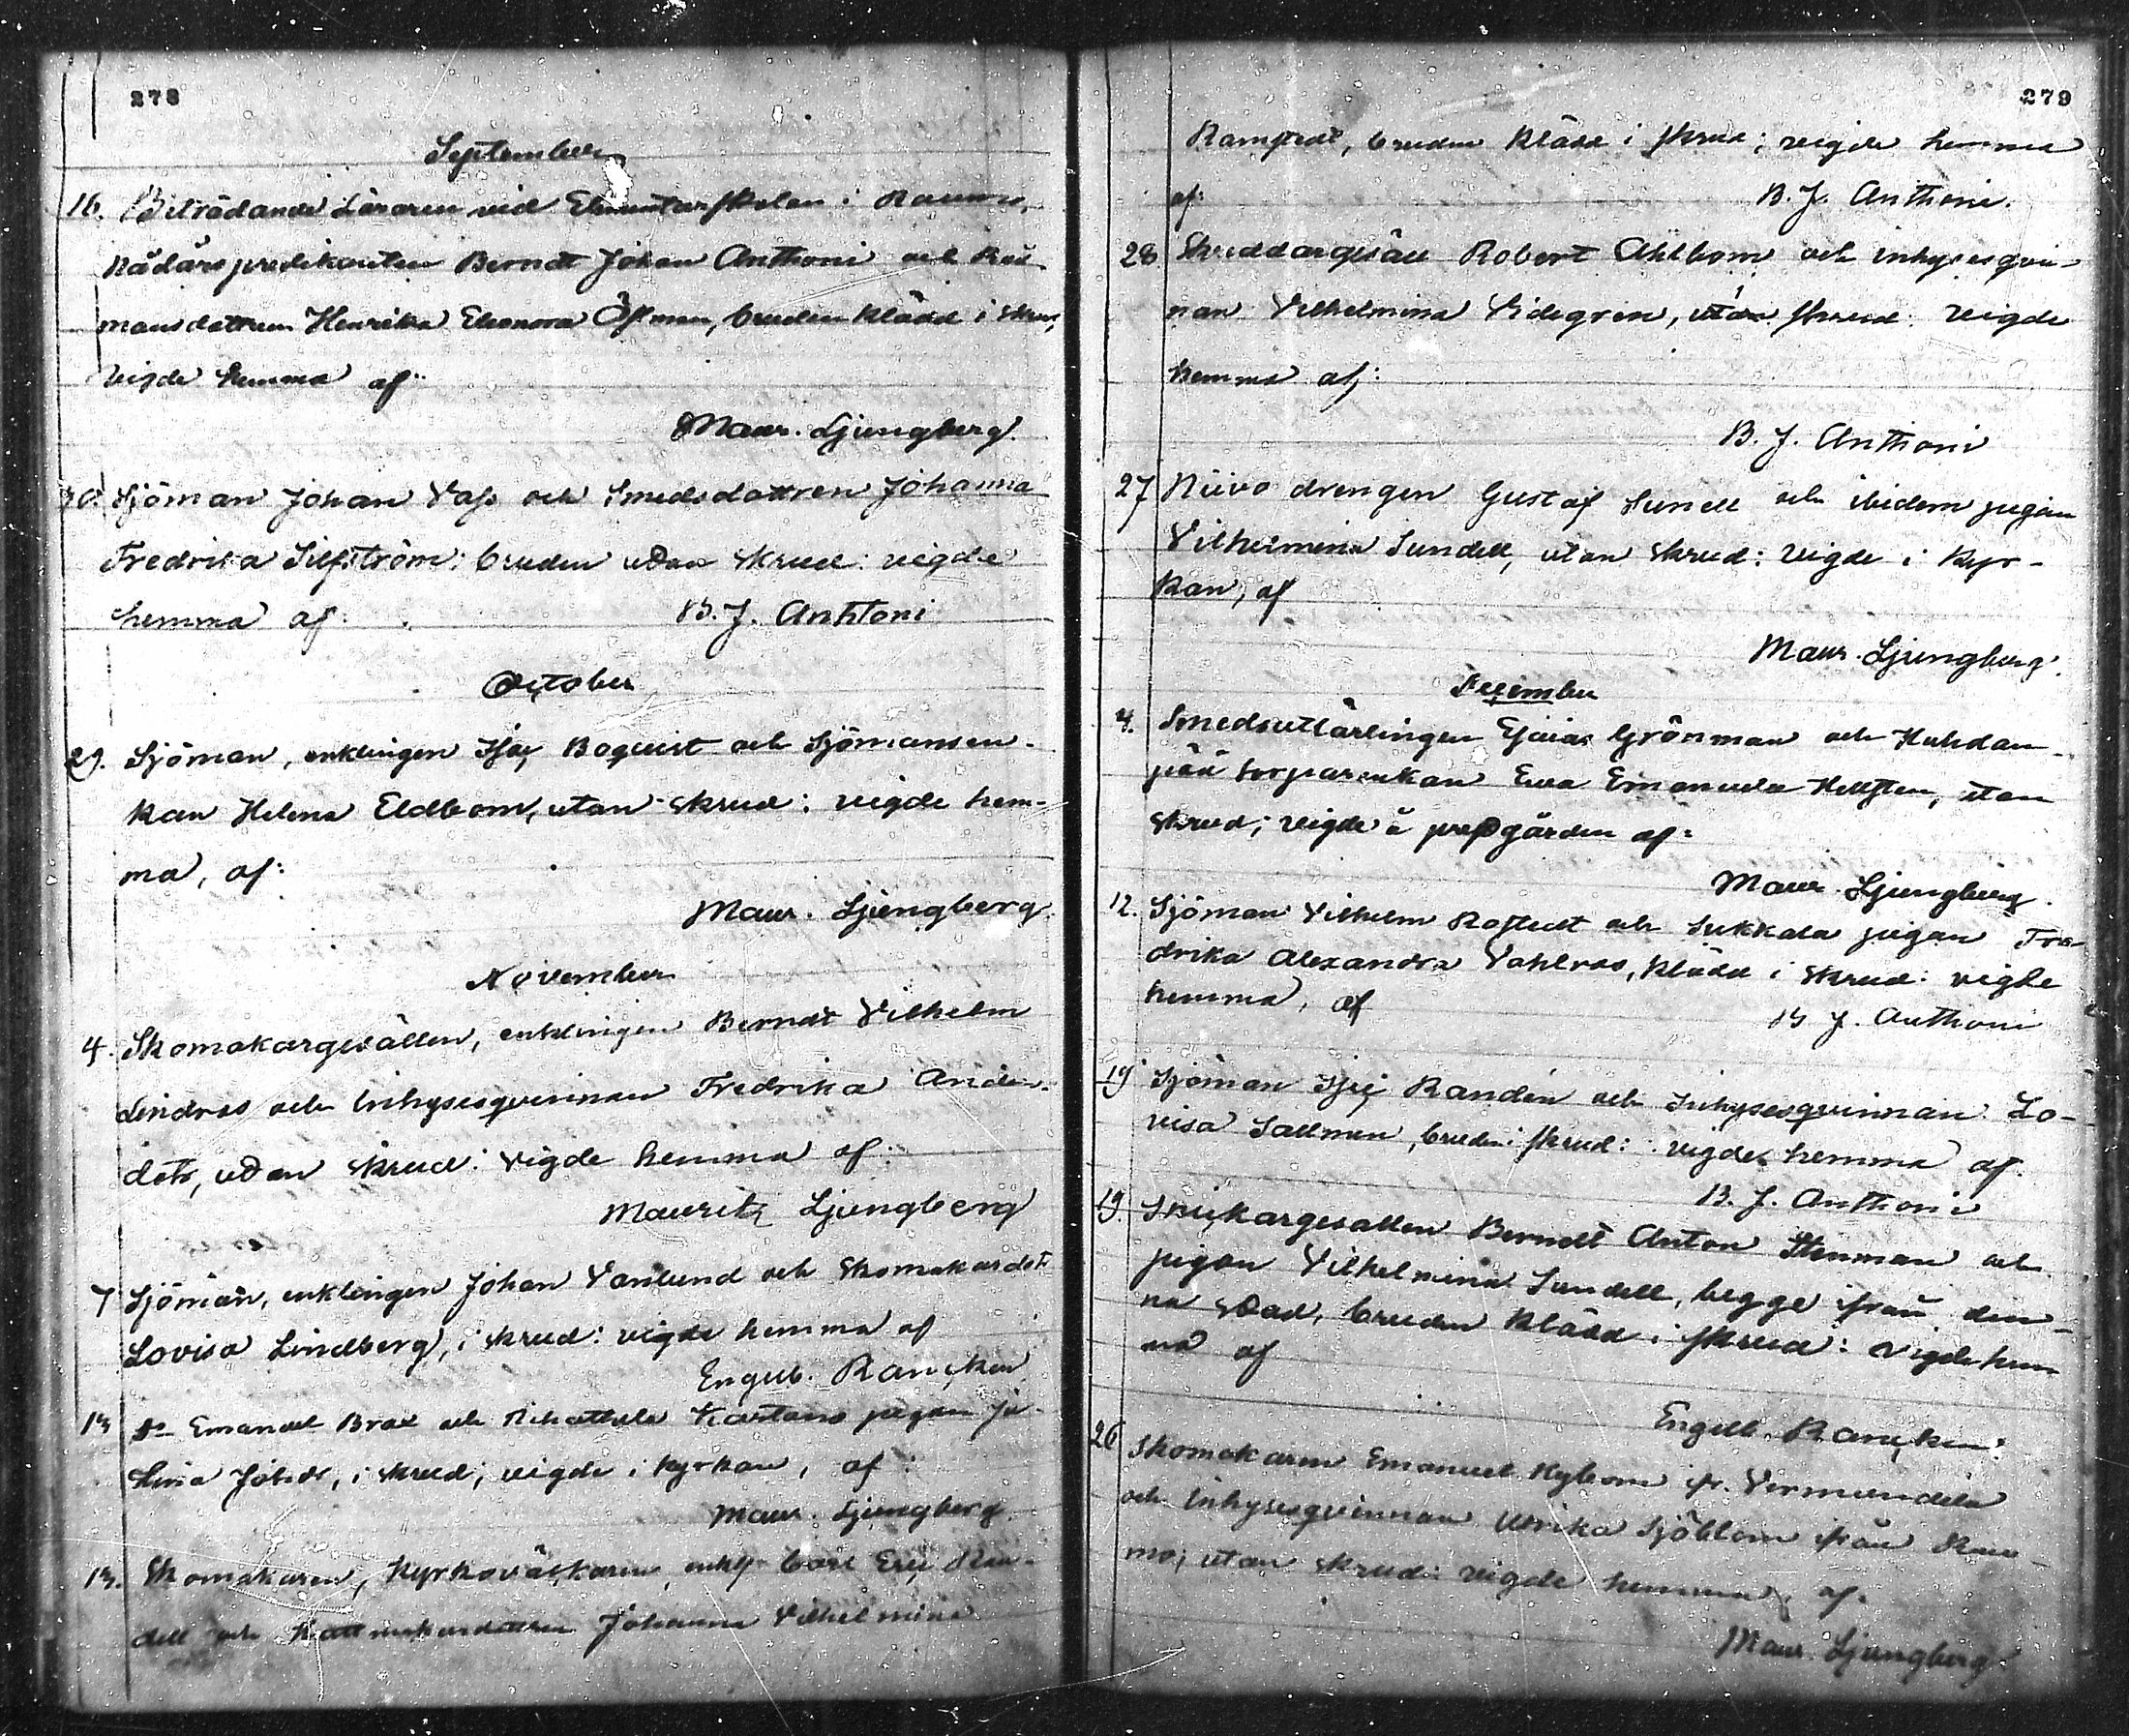 278
September
16. Biträdande Läraren vid Elementarskolan i Raumo,
Nådårspredikanten Berndt Johan Anthoni och Råd-
mansdottren Henrika Eleonora Öhman, bruden klädd i skrud,
vigde hemma af:
Maur. Ljungberg.
30. Sjöman Johan Vass och Smedsdottren Johanna
Fredrika Silfström: bruden utan skrud: vigde
hemma af: B. J. Anhtoni
October
29. Sjöman, enklingen Isac Boquist och Sjömansen-
kan Helena Eldbom, utan skrud: vigde hem-
ma, af:
Maur. Ljungberg.
November
4. Skomakargesällen, enklingen Berndt Vilhelm
Lindros och Inhysesqvinnan Fredrika Anders-
dotr, utan skrud: vigde hemma af:
Mauritz Ljungberg
7 Sjöman, enklingen Johan Vanlund och Skomakardotr
Lovisa Lindberg, i skrud: vigde hemma af
Engelb. Rancken
13 Dr Emanuel Brax och Kartano pigan Ju-
liana Johdr, i skrud; vigde i kyrkan, af:
Maur. Ljungberg
13. Skomakaren, Kyrkoväktaren, enkl Carl Eric Ran-
dell och Hattmakardottren Johanna Vilhelmina
279
Ramstedt, bruden klädd i skrud; vigde hemma
af: B. J. Anthoni.
28 Skreddargesäll Robert Ahlbom och inhysesqvin-
nan Vilhelmina Sidegren, utan skrud. vigde
hemma af:
B. J. Anthoni
27 Niivo drengen Gustaf Sundell och ibidem pigan
Vilhelmina Sundell, utan skrud: vigde i Kyr-
kan, af
Maur. Ljungberg.
December
4. Smedsutlärlingen Esaias Grönman och Huhdan-
pää torparenkan Eva Emanuela Hellsten, utan
skrud; vigde å prestgården af:
Maur. Ljungberg.
12. Sjöman Vilhelm Rostedt och Sukkala pigan Fre-
drika Alexandra Vahlros, klädd i skrud: vigde
hemma, af B J. Anthoni
19 Sjöman Isac Randén och Inhysesqvinnan Lo-
visa Sallmen, bruden i skrud: vigde hemma af
B. J. Anthoni
19. Snickargesällen Berndt Anton Stenman och
pigan Vilhelmina Sundell, begge från den-
na stad, bruden klädd i skrud: vigde hem
ma af
Engelb. Rancken:
26 Skomakaren Emanuel Nybom fr. Vermundela
och Inhysesqvinnan Ulrika Sjöblom från Rau-
mo; utan skrud: vigde hemma, af.
Maur. Ljungberg